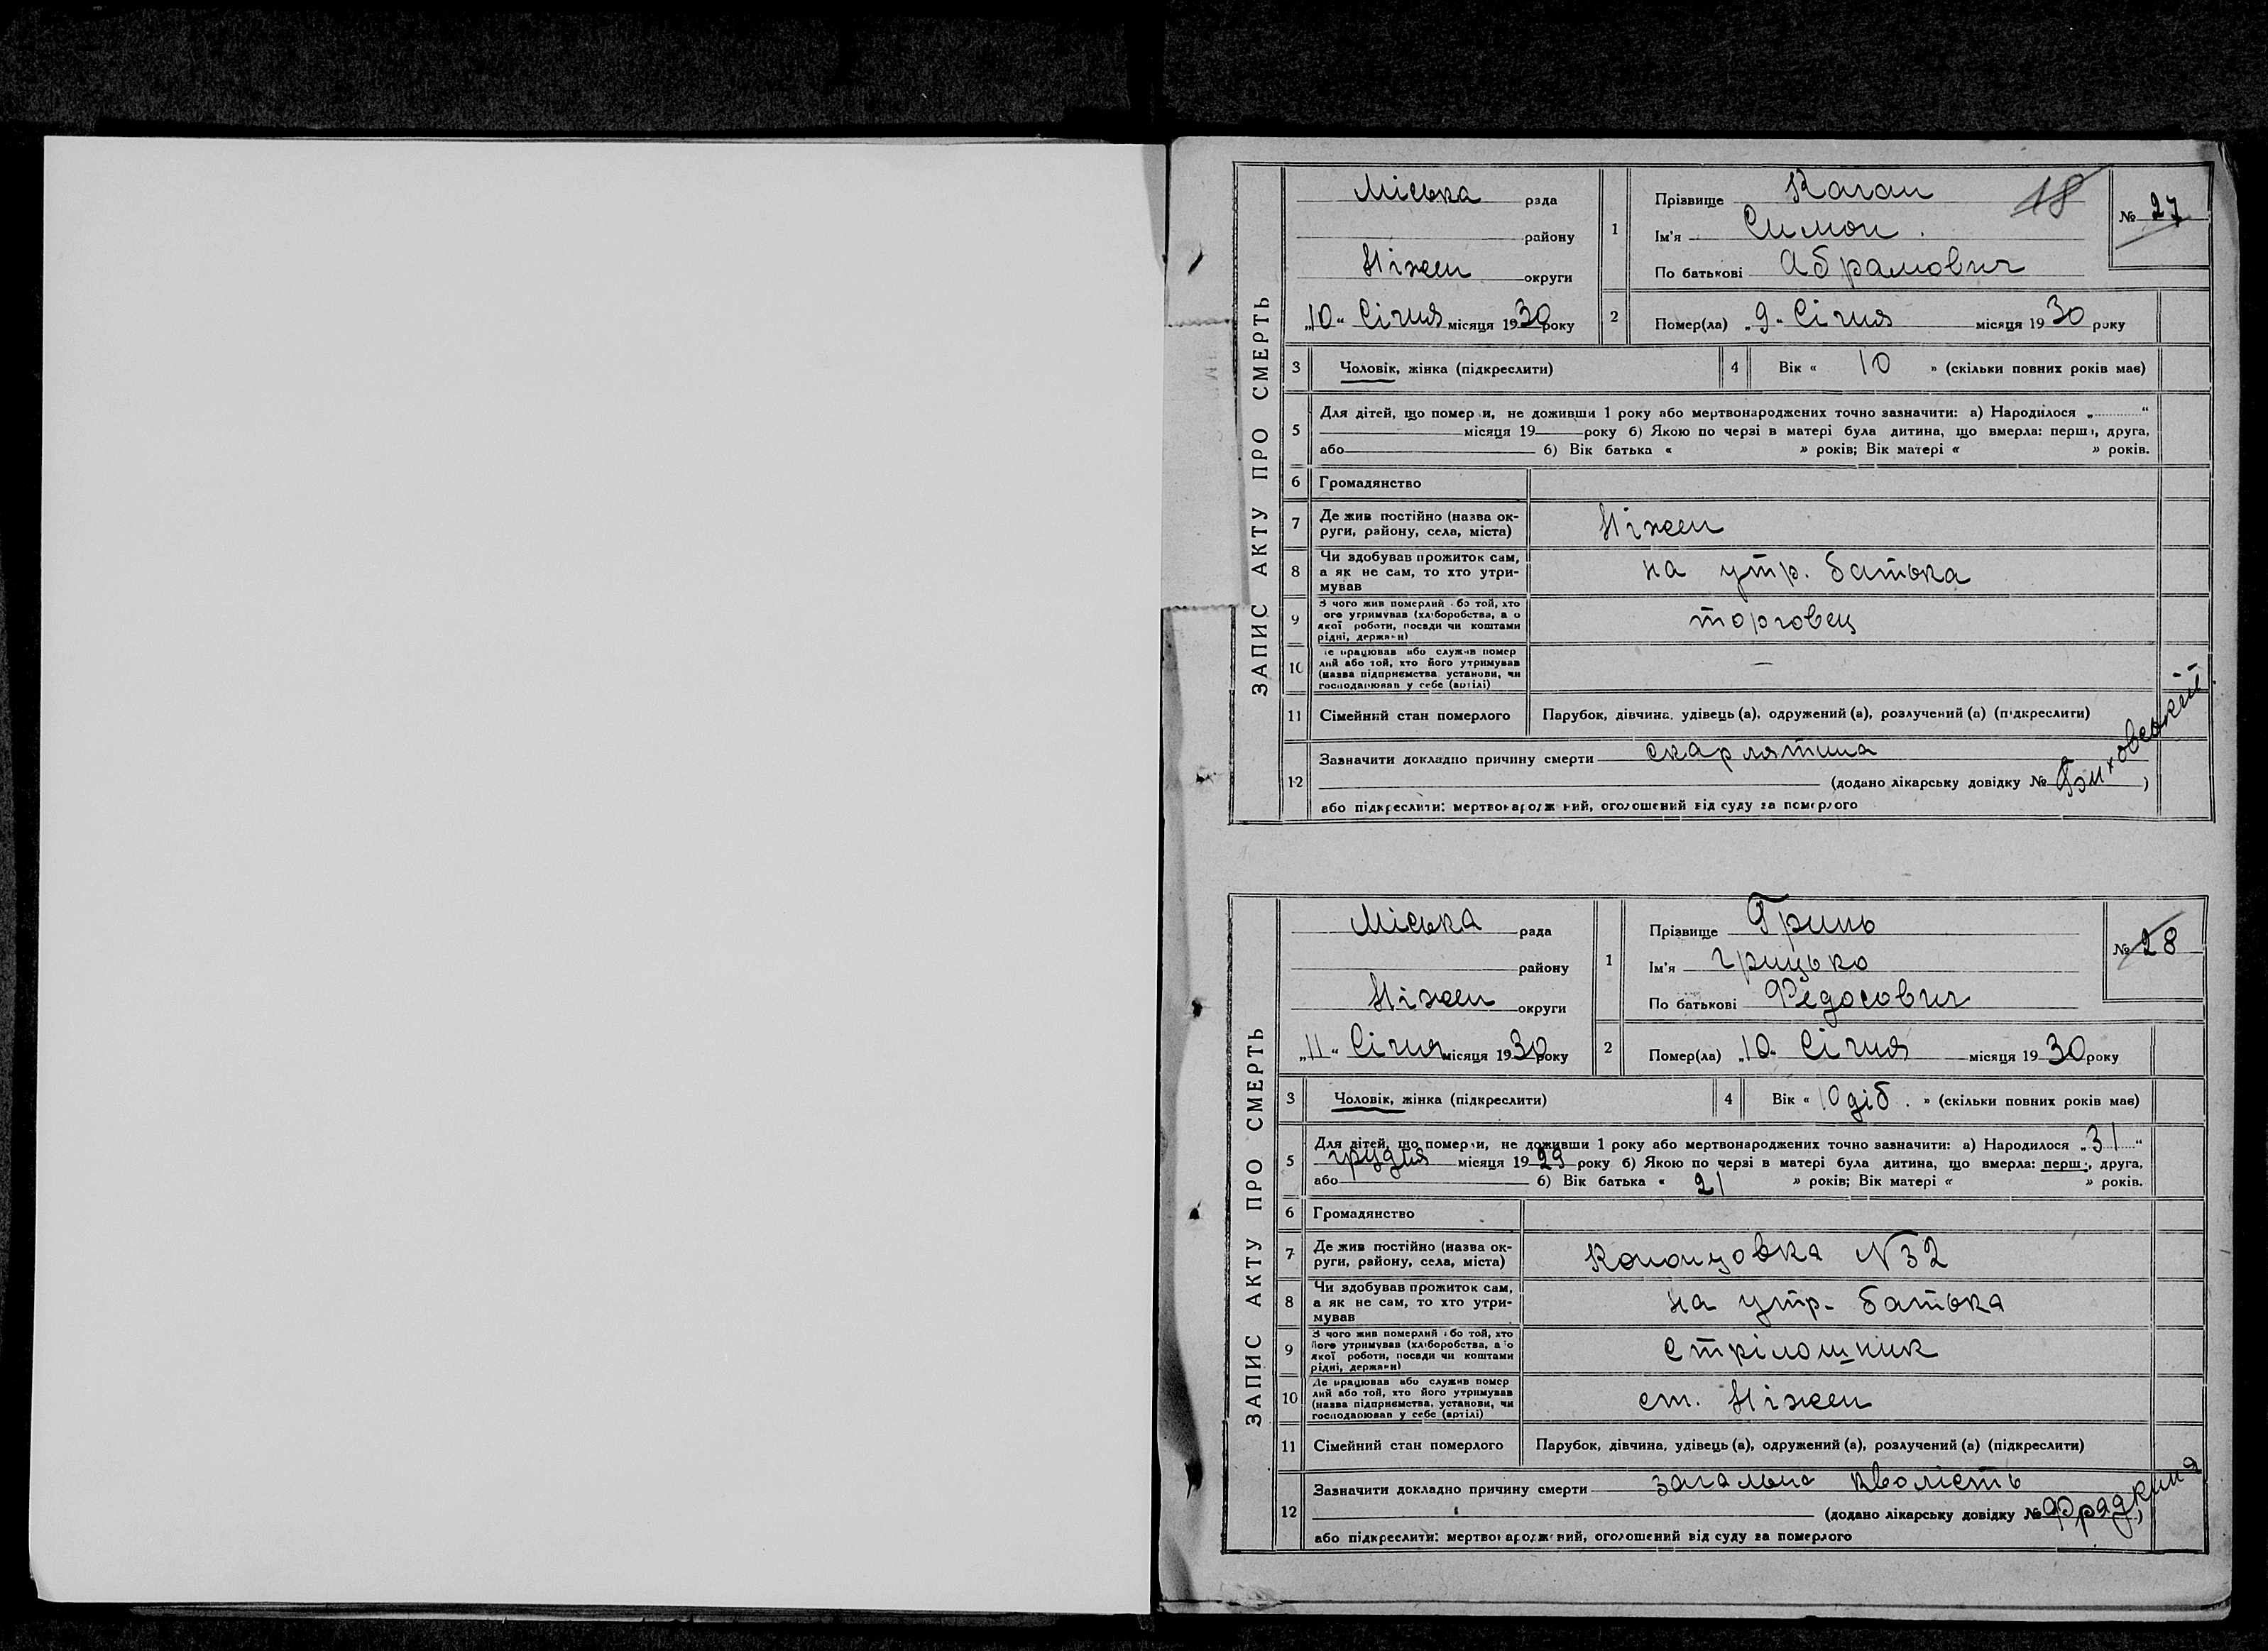 ЗАПИС АКТУ ПРО СМЕРТЬ
Міська рада
району
Ніжен округи
„10“ Січня місяця 1930 року
1 Прізвище Каган
Ім'я Симон.
По батькові Абрамович
18
№ 27
2 Помер(ла) „9“ Січня місяця 1930 року
3 Чоловік, жінка (підкреслити)
4 Вік « 10 » (скільки повних років має)
5 Для дітей, що померли, не доживши 1 року або мертвонароджених точно зазначити: а) Народилося „ “
місяця 19 року б) Якою по черзі в матері була дитина, що вмерла: перша, друга,
або б) Вік батька « » років; Вік матері « » років.
6 Громадянство
7 Де жив постійно (назва ок-
руги, району, села, міста) Ніжен
8 Чи здобував прожиток сам,
а як не сам, то хто утри-
мував на утр. батька
9 З чого жив померлий або той, хто
його утримував (хліборобства, або
якої роботи, посади чи коштами
рідні, держави) торговец
10 Де працював або служив помер
лий або той, хто його утримував
(назва підприємства, установи, чи
господарював у себе (артілі) —
11 Сімейний стан померлого Парубок, дівчина, удівець (а), одружений (а), розлучений (а) (підкреслити)
12 Зазначити докладно причину смерти скарлятина
(додано лікарську довідку № )
або підкреслити: мертвонароджений, оголошений від суду за померлого
ЗАПИС АКТУ ПРО СМЕРТЬ
Міська рада
району
Ніжен округи
„11“ Січня місяця 1930 року
1 Прізвище Гринь
Ім'я Грицько
По батькові Федосович
№ 28
2 Помер(ла) „10“ Січня місяця 1930 року
3 Чоловік, жінка (підкреслити)
4 Вік « 10 діб. » (скільки повних років має)
5 Для дітей, що померли, не доживши 1 року або мертвонароджених точно зазначити: а) Народилося „31“
грудня місяця 1929 року б) Якою по черзі в матері була дитина, що вмерла: перша, друга,
або б) Вік батька « 21 » років; Вік матері « » років.
6 Громадянство
7 Де жив постійно (назва ок-
руги, району, села, міста) Кононовка N 32
8 Чи здобував прожиток сам,
а як не сам, то хто утри-
мував на утр. батька
9 З чого жив померлий або той, хто
його утримував (хліборобства, або
якої роботи, посади чи коштами
рідні, держави) Стрілошник
10 Де працював або служив помер
лий або той, хто його утримував
(назва підприємства, установи, чи
господарював у себе (артілі) ст. Ніжен
11 Сімейний стан померлого Парубок, дівчина, удівець (а), одружений (а), розлучений (а) (підкреслити)
12 Зазначити докладно причину смерти загальна кволість
(додано лікарську довідку № Фрадкина )
або підкреслити: мертвонароджений, оголошений від суду за померлого